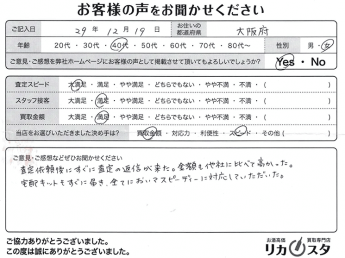 お客様の声をお聞かせください
ご記入日 29年 12月 19日 お住いの都道府県 大阪府
年齢 20代・30代・40代・50代・60代・70代・80代〜 性別 男・女
ご意見・ご感想を弊社ホームページにお客様の声として掲載させて頂いてもよろしいでしょうか? Yes・No
査定スピード 大満足・満足・どちらでもない・やや不満・不満・( )
スタッフ接客 大満足・満足・どちらでもない・やや不満・不満・( )
買取金額 大満足・満足・どちらでもない・やや不満・不満・( )
当店をお選びいただきました決め手は? 買取金額・対応力・利便性・スピード・その他( )
ご意見・ご感想などぜひお聞かせください
査定依頼後にすぐに査定の返信が来た。金額も他社に比べて高かった。
宅配キットもすぐに届き、全てにおいてスピーディーに対応していただいた。
ご協力ありがとうございました。
この度は誠にありがとうございました。
お酒高価買取専門店
リカスタ